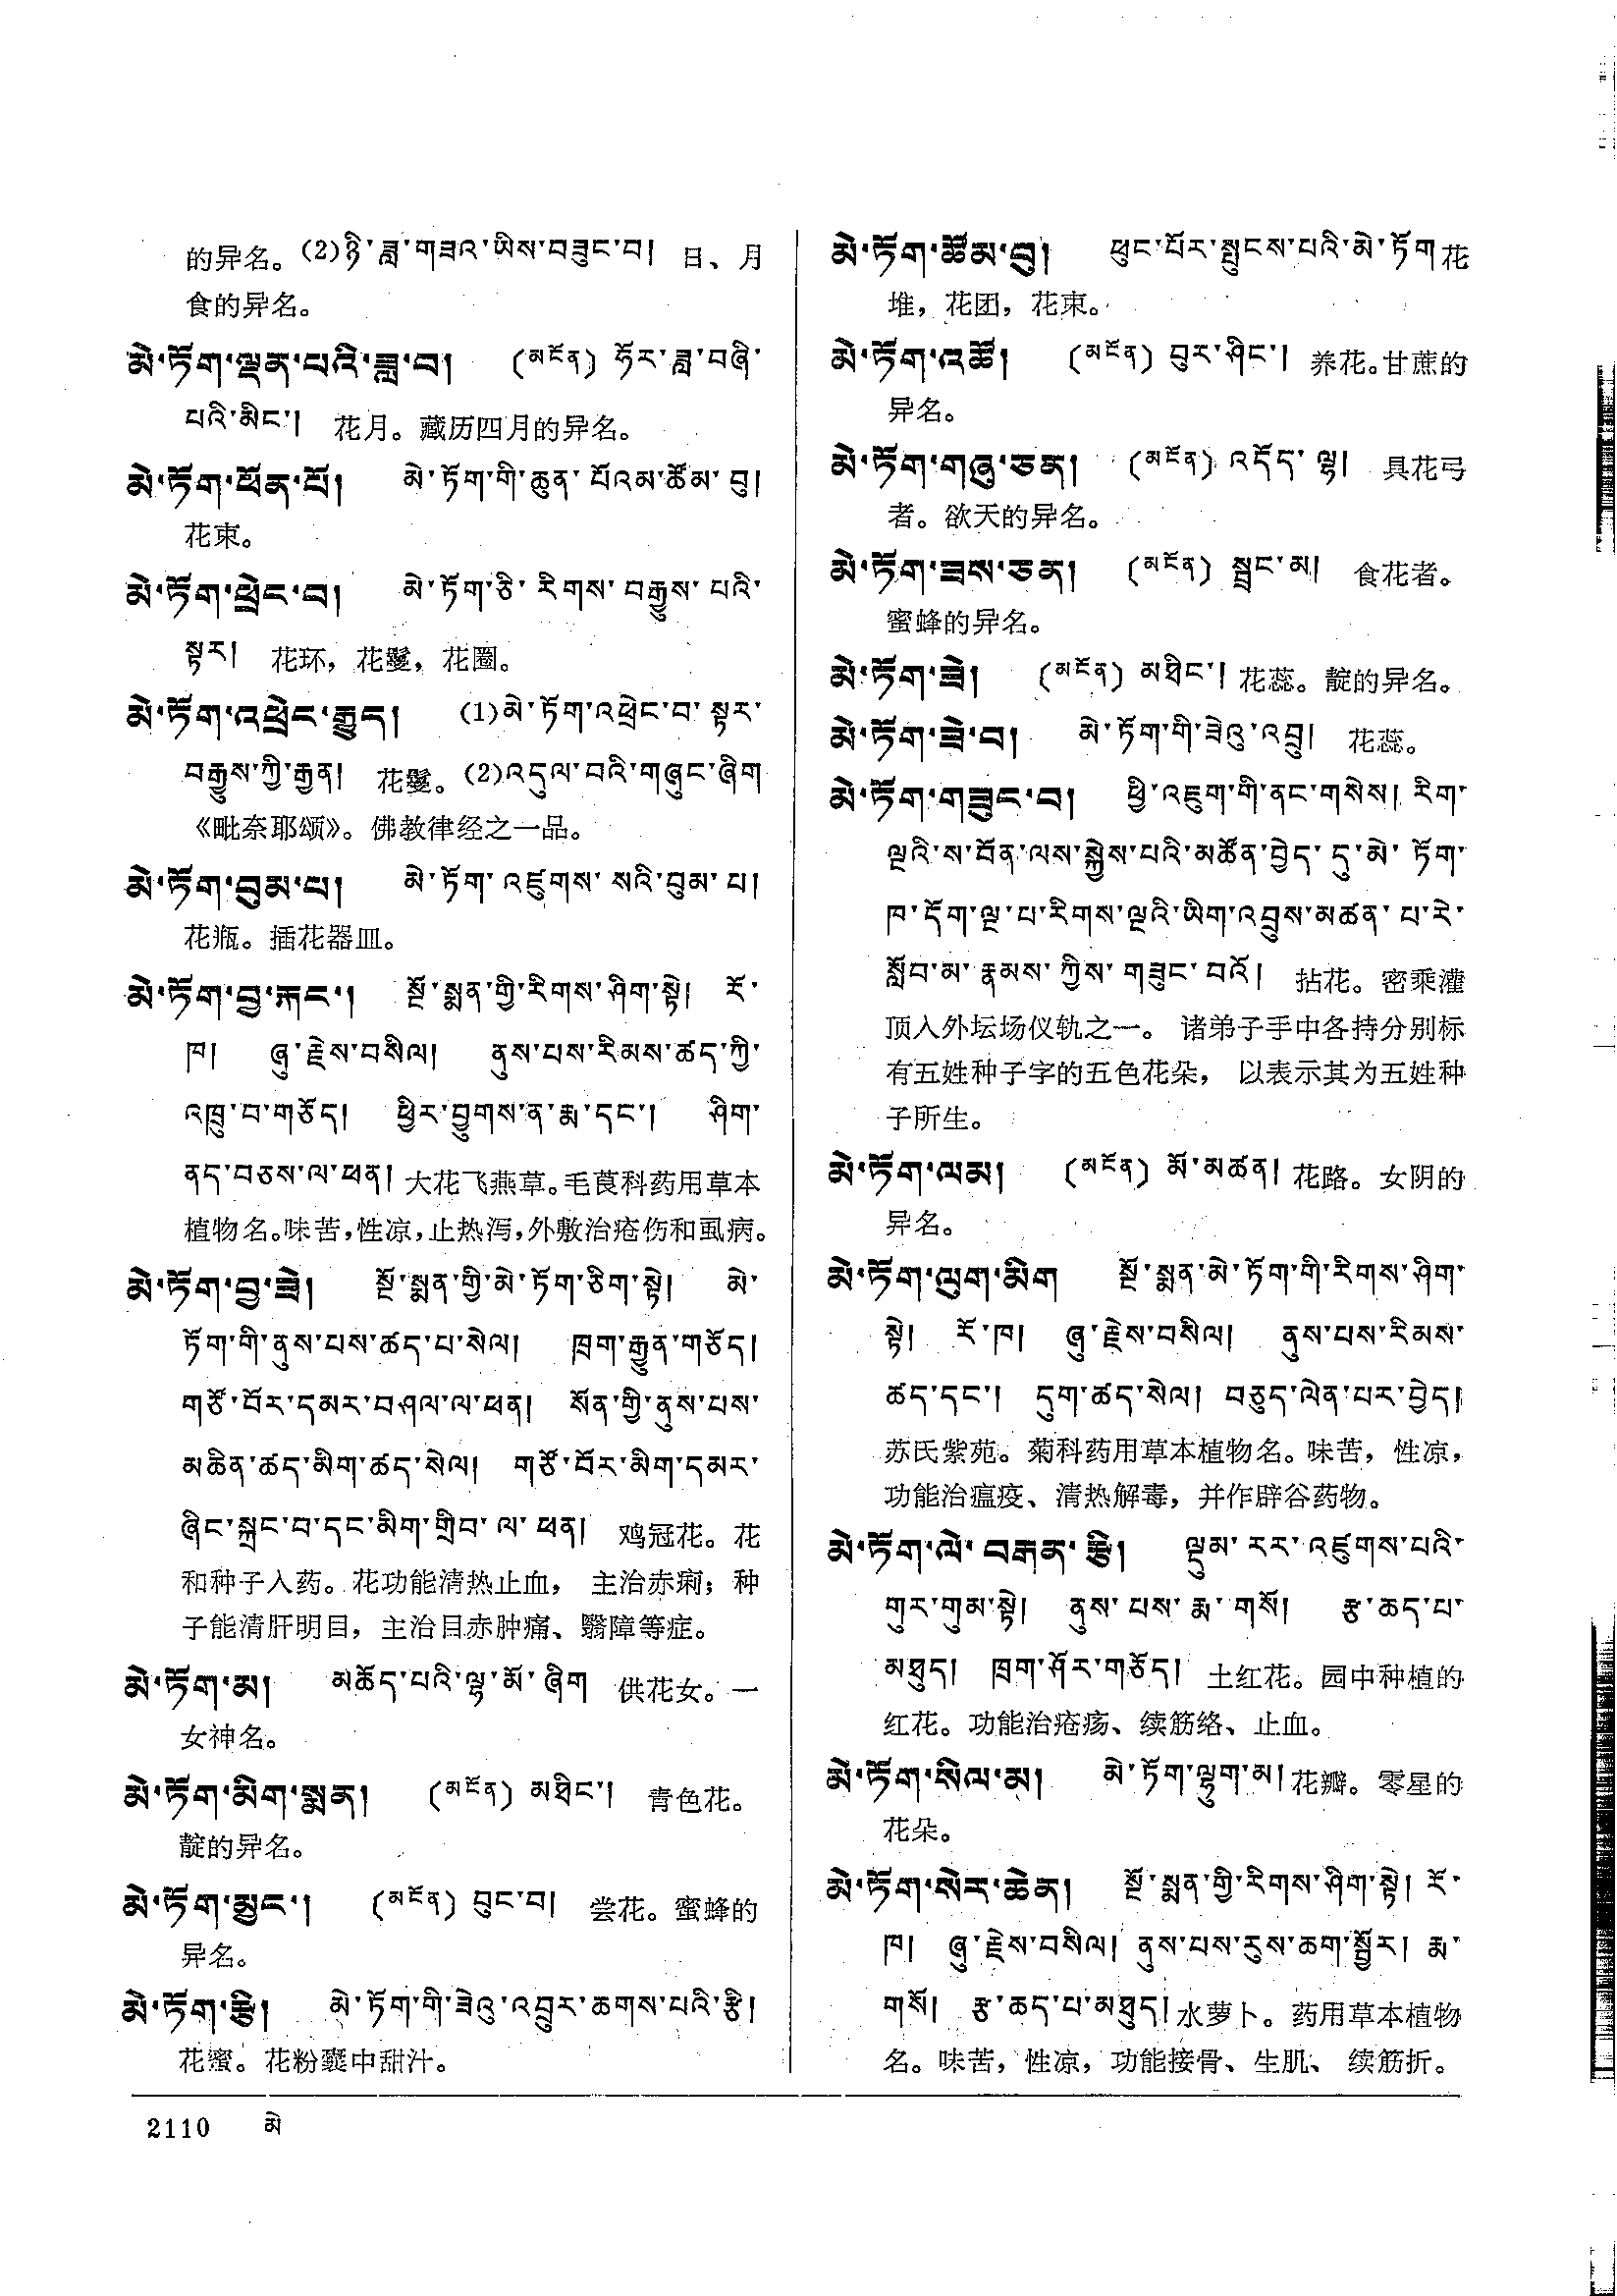 的异名。(2)ཉི་ཟླ་གཟའ་ཡིས་བཟུང་བ། 日、月
食的异名。
མེ་ཏོག་ལྡན་པའི་ཟླ་བ། (མངོན) ཧོར་ཟླ་བཞི་
པའི་མིང་། 花月。藏历四月的异名。
མེ་ཏོག་ཕོན་པོ། མེ་ཏོག་གི་ཆུན་པོའམ་ཚོམ་བུ།
花束。
མེ་ཏོག་ཕྲེང་བ། མེ་ཏོག་ཅི་རིགས་བརྒྱུས་པའི་
སྟར། 花环，花鬘，花圈。
མེ་ཏོག་འཕྲེང་རྒྱུད། (1)མེ་ཏོག་འཕྲེང་བ་སྟར་
བརྒྱུས་ཀྱི་རྒྱན། 花鬘。(2)འདུལ་བའི་གཞུང་ཞིག
《毗奈耶颂》。佛教律经之一品。
མེ་ཏོག་བུམ་པ། མེ་ཏོག་འཛུགས་སའི་བུམ་པ།
花瓶。插花器皿。
མེ་ཏོག་བྱ་རྐང་། སྔོ་སྨན་གྱི་རིགས་ཤིག་སྟེ། རོ་
ཁ། ཞུ་རྗེས་བསིལ། ནུས་པས་རིམས་ཚད་ཀྱི་
འཁྲུ་བ་གཅོད། ཕྱིར་བྱུགས་ན་རྨ་དང་། ཤིག་
ནད་བཅས་ལ་ཕན། 大花飞燕草。毛茛科药用草本
植物名。味苦，性凉，止热泻，外敷治疮伤和虱病。
མེ་ཏོག་བྱ་ཟེ། སྔོ་སྨན་གྱི་མེ་ཏོག་ཅིག་སྟེ། མེ་
ཏོག་གི་ནུས་པས་ཚད་པ་སེལ། ཁྲག་རྒྱུན་གཅོད།
གཙོ་བོར་དམར་བཤལ་ལ་ཕན། སོན་གྱི་ནུས་པས་
མཆིན་ཚད་མིག་ཚད་སེལ། གཙོ་བོར་མིག་དམར་
ཞིང་སྐྲང་བ་དང་མིག་གྲིབ་ལ་ཕན། 鸡冠花。花
和种子入药。花功能清热止血， 主治赤痢；种
子能清肝明目，主治目赤肿痛、翳障等症。
མེ་ཏོག་མ། མཆོད་པའི་ལྷ་མོ་ཞིག 供花女。一
女神名。
མེ་ཏོག་མིག་སྨན། (མངོན) མཐིང་། 青色花。
靛的异名。
མེ་ཏོག་མྱང་། (མངོན) བུང་བ། 尝花。蜜蜂的
异名。
མེ་ཏོག་རྩི། མེ་ཏོག་གི་ཟེའུ་འབྲུར་ཆགས་པའི་རྩི།
花蜜。花粉囊中甜汁。
མེ་ཏོག་ཚོམ་བུ། ཕུང་པོར་སྤུངས་པའི་མེ་ཏོག 花
堆，花团，花束。
མེ་ཏོག་འཚོ། (མངོན) བུར་ཤིང་། 养花。甘蔗的
异名。
མེ་ཏོག་གཞུ་ཅན། (མངོན) འདོད་ལྷ། 具花弓
者。欲天的异名。
མེ་ཏོག་ཟས་ཅན། (མངོན) སྦྲང་མ། 食花者。
蜜蜂的异名。
མེ་ཏོག་ཟེ། (མངོན) མཐིང་། 花蕊。靛的异名。
མེ་ཏོག་ཟེ་བ། མེ་ཏོག་གི་ཟེའུ་འབྲུ། 花蕊。
མེ་ཏོག་གཟུང་བ། ཕྱི་འཇུག་གི་ནང་གསེས། རིག་
ལྔའི་ས་བོན་ལས་སྐྱེས་པའི་མཚོན་བྱེད་དུ་མེ་ཏོག་
ཁ་དོག་ལྔ་པ་རིགས་ལྔའི་ཡིག་འབྲུས་མཚན་པ་རེ་
སློབ་མ་རྣམས་ཀྱིས་གཟུང་བའོ། 拈花。密乘灌
顶入外坛场仪轨之一。 诸弟子手中各持分别标
有五姓种子字的五色花朵， 以表示其为五姓种
子所生。
མེ་ཏོག་ལམ། (མངོན) མོ་མཚན། 花路。女阴的
异名。
མེ་ཏོག་ལུག་མིག སྔོ་སྨན་མེ་ཏོག་གི་རིགས་ཤིག་
སྟེ། རོ་ཁ། ཞུ་རྗེས་བསིལ། ནུས་པས་རིམས་
ཚད་དང་། དུག་ཚད་སེལ། བཅུད་ལེན་པར་བྱེད།
苏氏紫苑。菊科药用草本植物名。味苦，性凉，
功能治瘟疫、清热解毒，并作辟谷药物。
མེ་ཏོག་ལེ་བརྒན་རྩི། ལྡུམ་རར་འཛུགས་པའི་
གུར་གུམ་སྟེ། ནུས་པས་རྨ་གསོ། རྩ་ཆད་པ་
མཐུད། ཁྲག་ཤོར་གཅོད། 土红花。园中种植的
红花。功能治疮疡、续筋络、止血。
མེ་ཏོག་སིལ་མ། མེ་ཏོག་ལྷུག་མ། 花瓣。零星的
花朵。
མེ་ཏོག་སེར་ཆེན། སྔོ་སྨན་གྱི་རིགས་ཤིག་སྟེ། རོ་
ཁ། ཞུ་རྗེས་བསིལ། ནུས་པས་རུས་ཆག་སྦྱོར། རྨ་
གསོ། རྩ་ཆད་པ་མཐུད། 水萝卜。药用草本植物
名。味苦，性凉，功能接骨、生肌、 续筋折。
2110 མེ